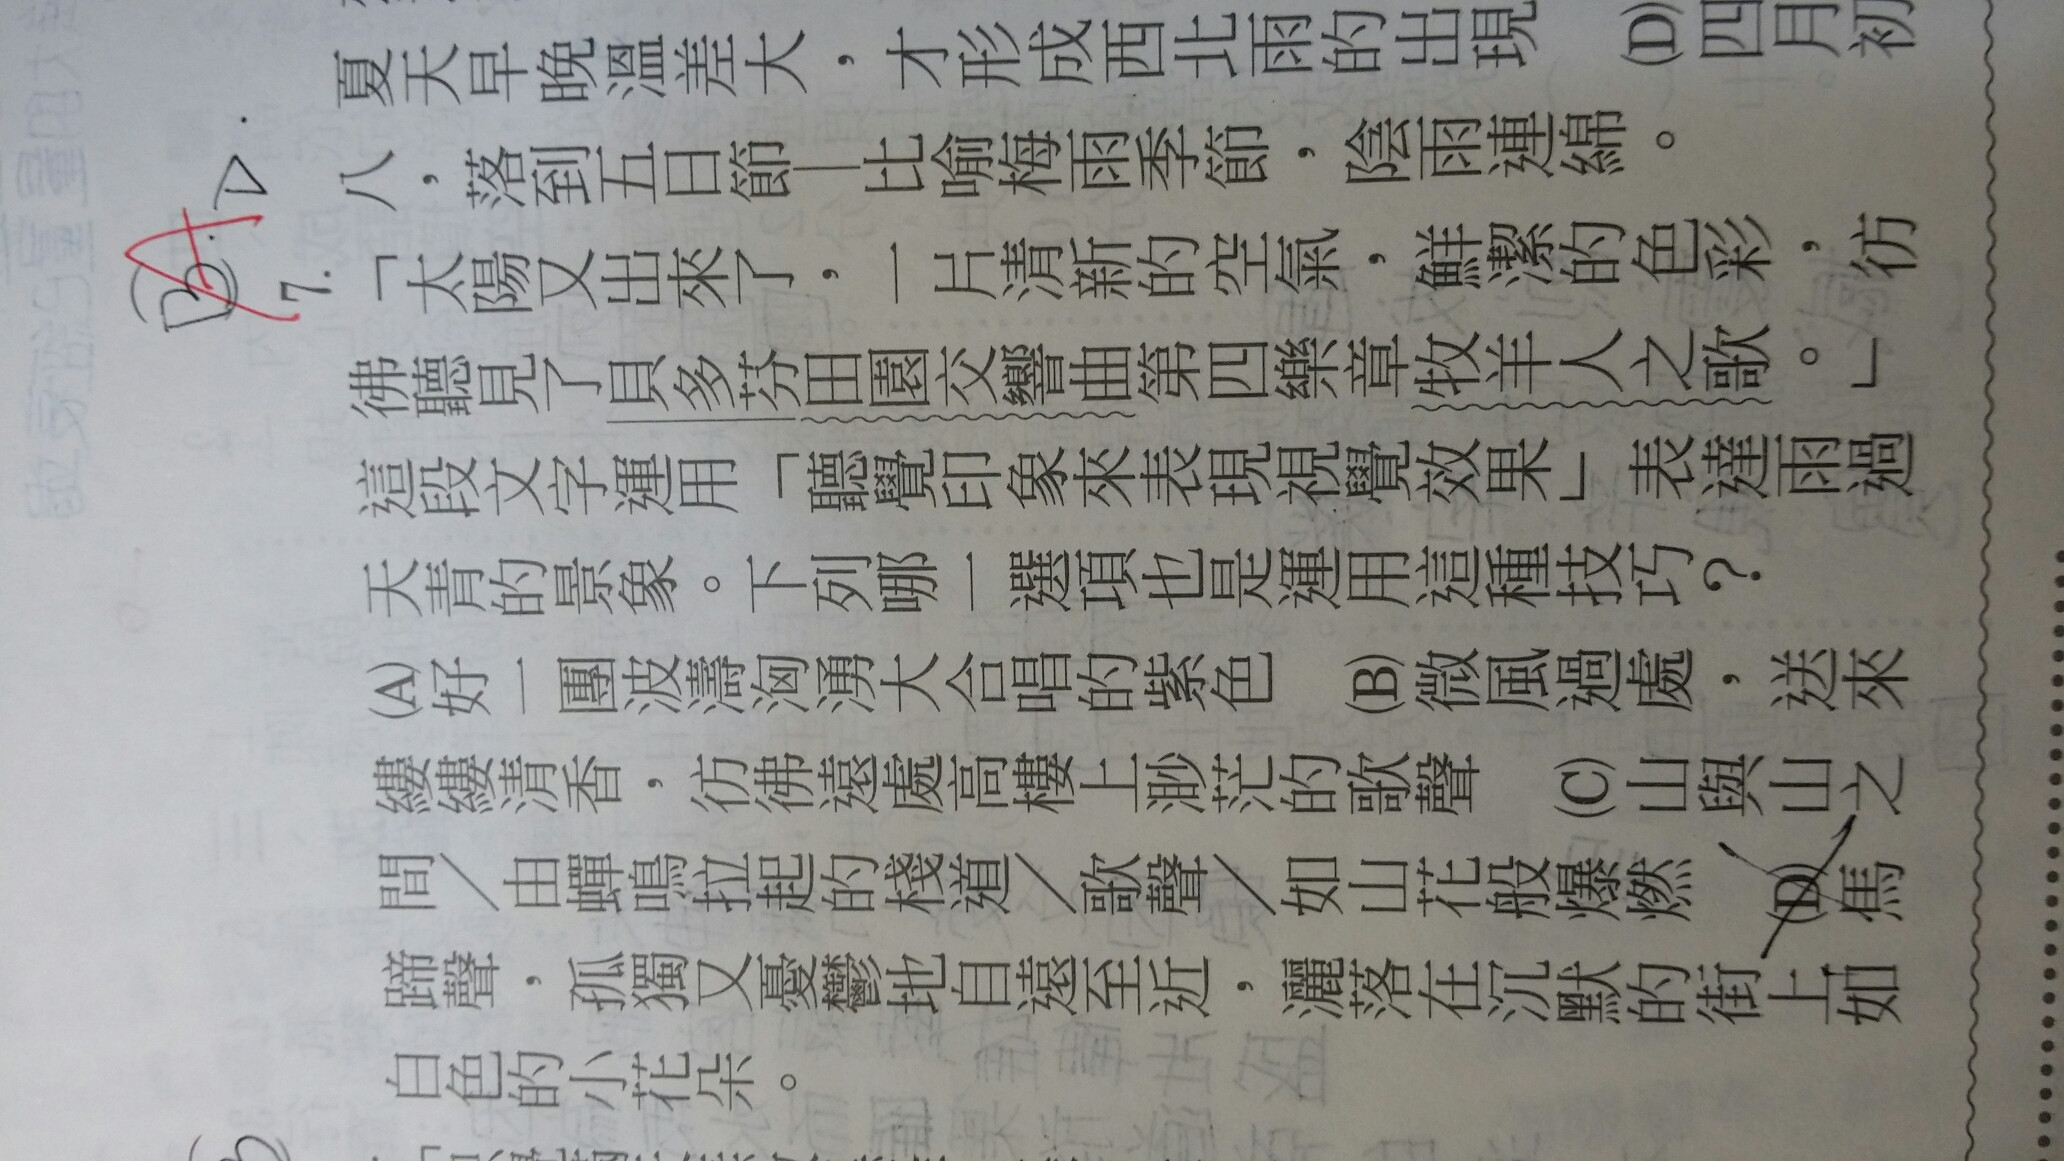 夏天早晚溫差大，才形成西北雨的出現　(D)四月初
八，落到五日節—比喻梅雨季節，陰雨連綿。
7.「太陽又出來了，一片清新的空氣，鮮潔的色彩，彷
彿聽見了貝多芬田園交響曲第四樂章牧羊人之歌。」
這段文字運用「聽覺印象來表現視覺效果」表達雨過
天青的景象。下列哪一選項也是運用這種技巧？
(A)好一團波濤洶湧大合唱的紫色　(B)微風過處，送來
縷縷清香，彷彿遠處高樓上渺茫的歌聲　(C)山與山之
間／由蟬鳴拉起的棧道／歌聲／如山花般爆燃　(D)馬
蹄聲，孤獨又憂鬱地自遠至近，灑落在沉默的街上如
白色的小花朵。